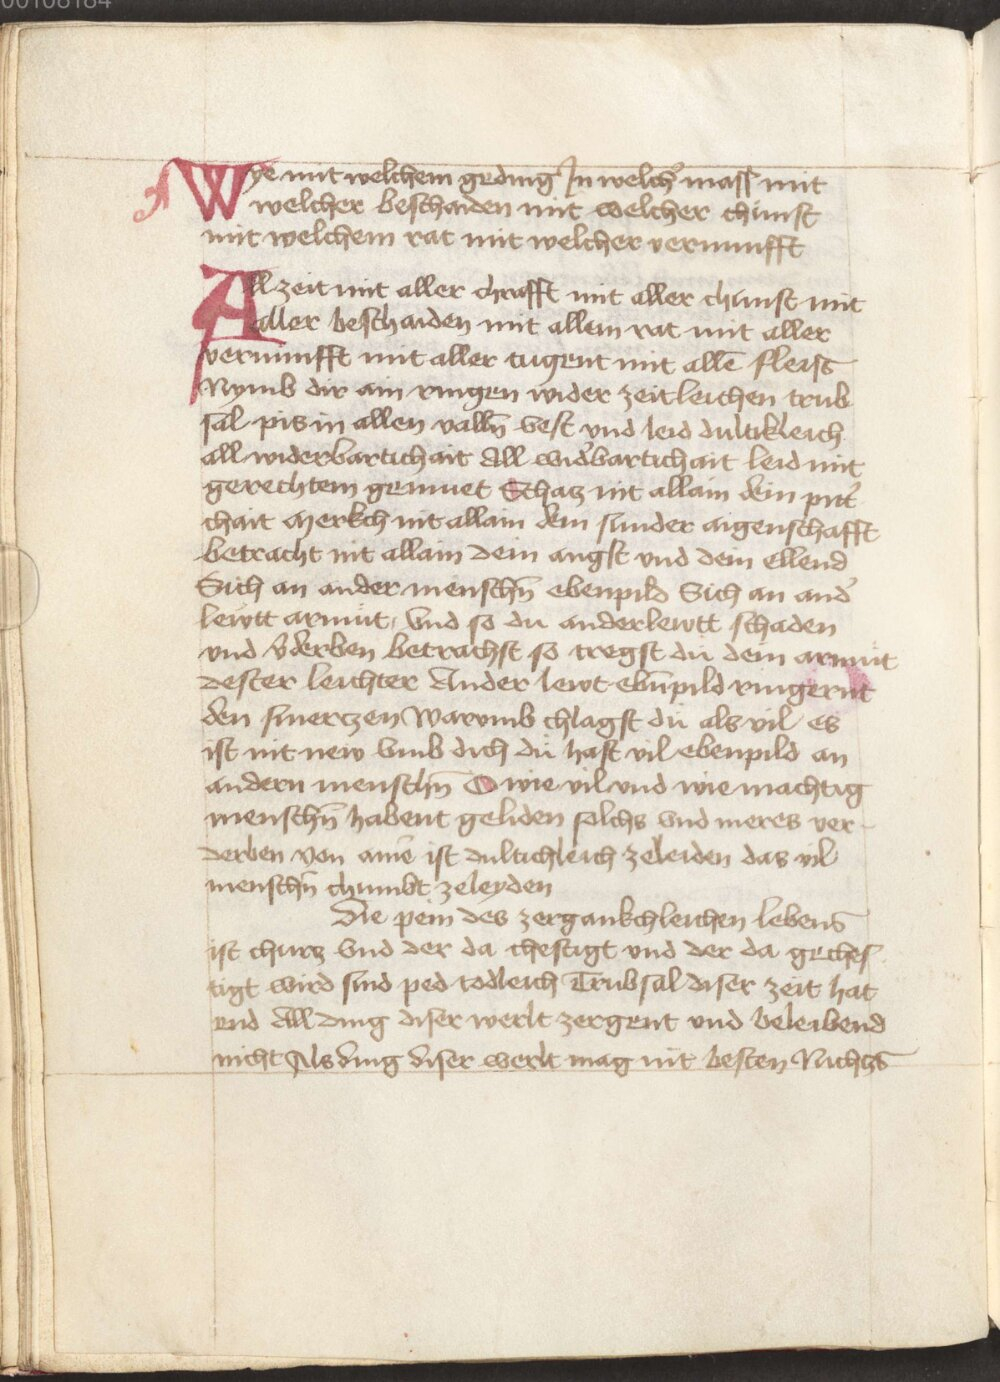 00108184
Wye mit welchem geding In welcher mass mit
welcher beschaiden mit welcher chunst
mit welchem rat mit welcher vernunfft
All zeit mit aller chrafft mit aller chunst mit
aller beschaiden mit allem rat mit aller
vernunfft mit aller tugent mit allē fleiss
Nymb dir ain ringen wider zeitleichen trub
sal pis in allen valln̄ vest vnd leid dultikleich
all widerbartichait All wid'bartichait leid mit
gerechtem gemuet Schaz nit allain dein pitt'
chait Merkch nit allain dein sunder aigenschafft
betracht nit allain dein angst vnd dein ellend
Sich an ander menschn̄ ebenpild Sich an and'
lewtt armut, Vnd so du anderlewtt schaden
vnd v'derben betrachst so tregst du dein armut
dester leichter Ander lewt ebn̄pild ringernt
den smerczen Warvmb chlagst du als vil es
ist nit new vmb dich du hast vil ebenpild an
andern menschn̄ O wie vil vnd wie machtig
menschn̄ habent geliden solchs vnd meres ver-
derben von aine ist dultichleich zeleiden das vil
menschn̄ chumbt zeleyden
Die pein des zergankchleichen lebens
ist churz vnd der da chestigt vnd der da geches
tigt wird sind ped todleich Trubsal diser zeit hat
end All ding diser werlt zergent vnd beleibend
nicht Als ding diser werlt mag nit besten Nichts